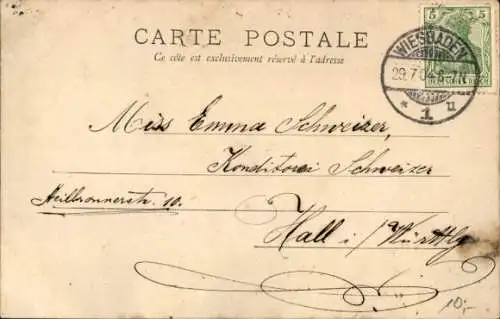 CARTE POSTALE
Ce côté est exclusivement réservé à l'adresse
5 5
WIESBADEN
29.7.04.6-7N
* 1 u
Miss Emma Schweizer,
Konditorei Schweizer
Heilbronnerstr. 10.
Hall i/Württbg
10,-